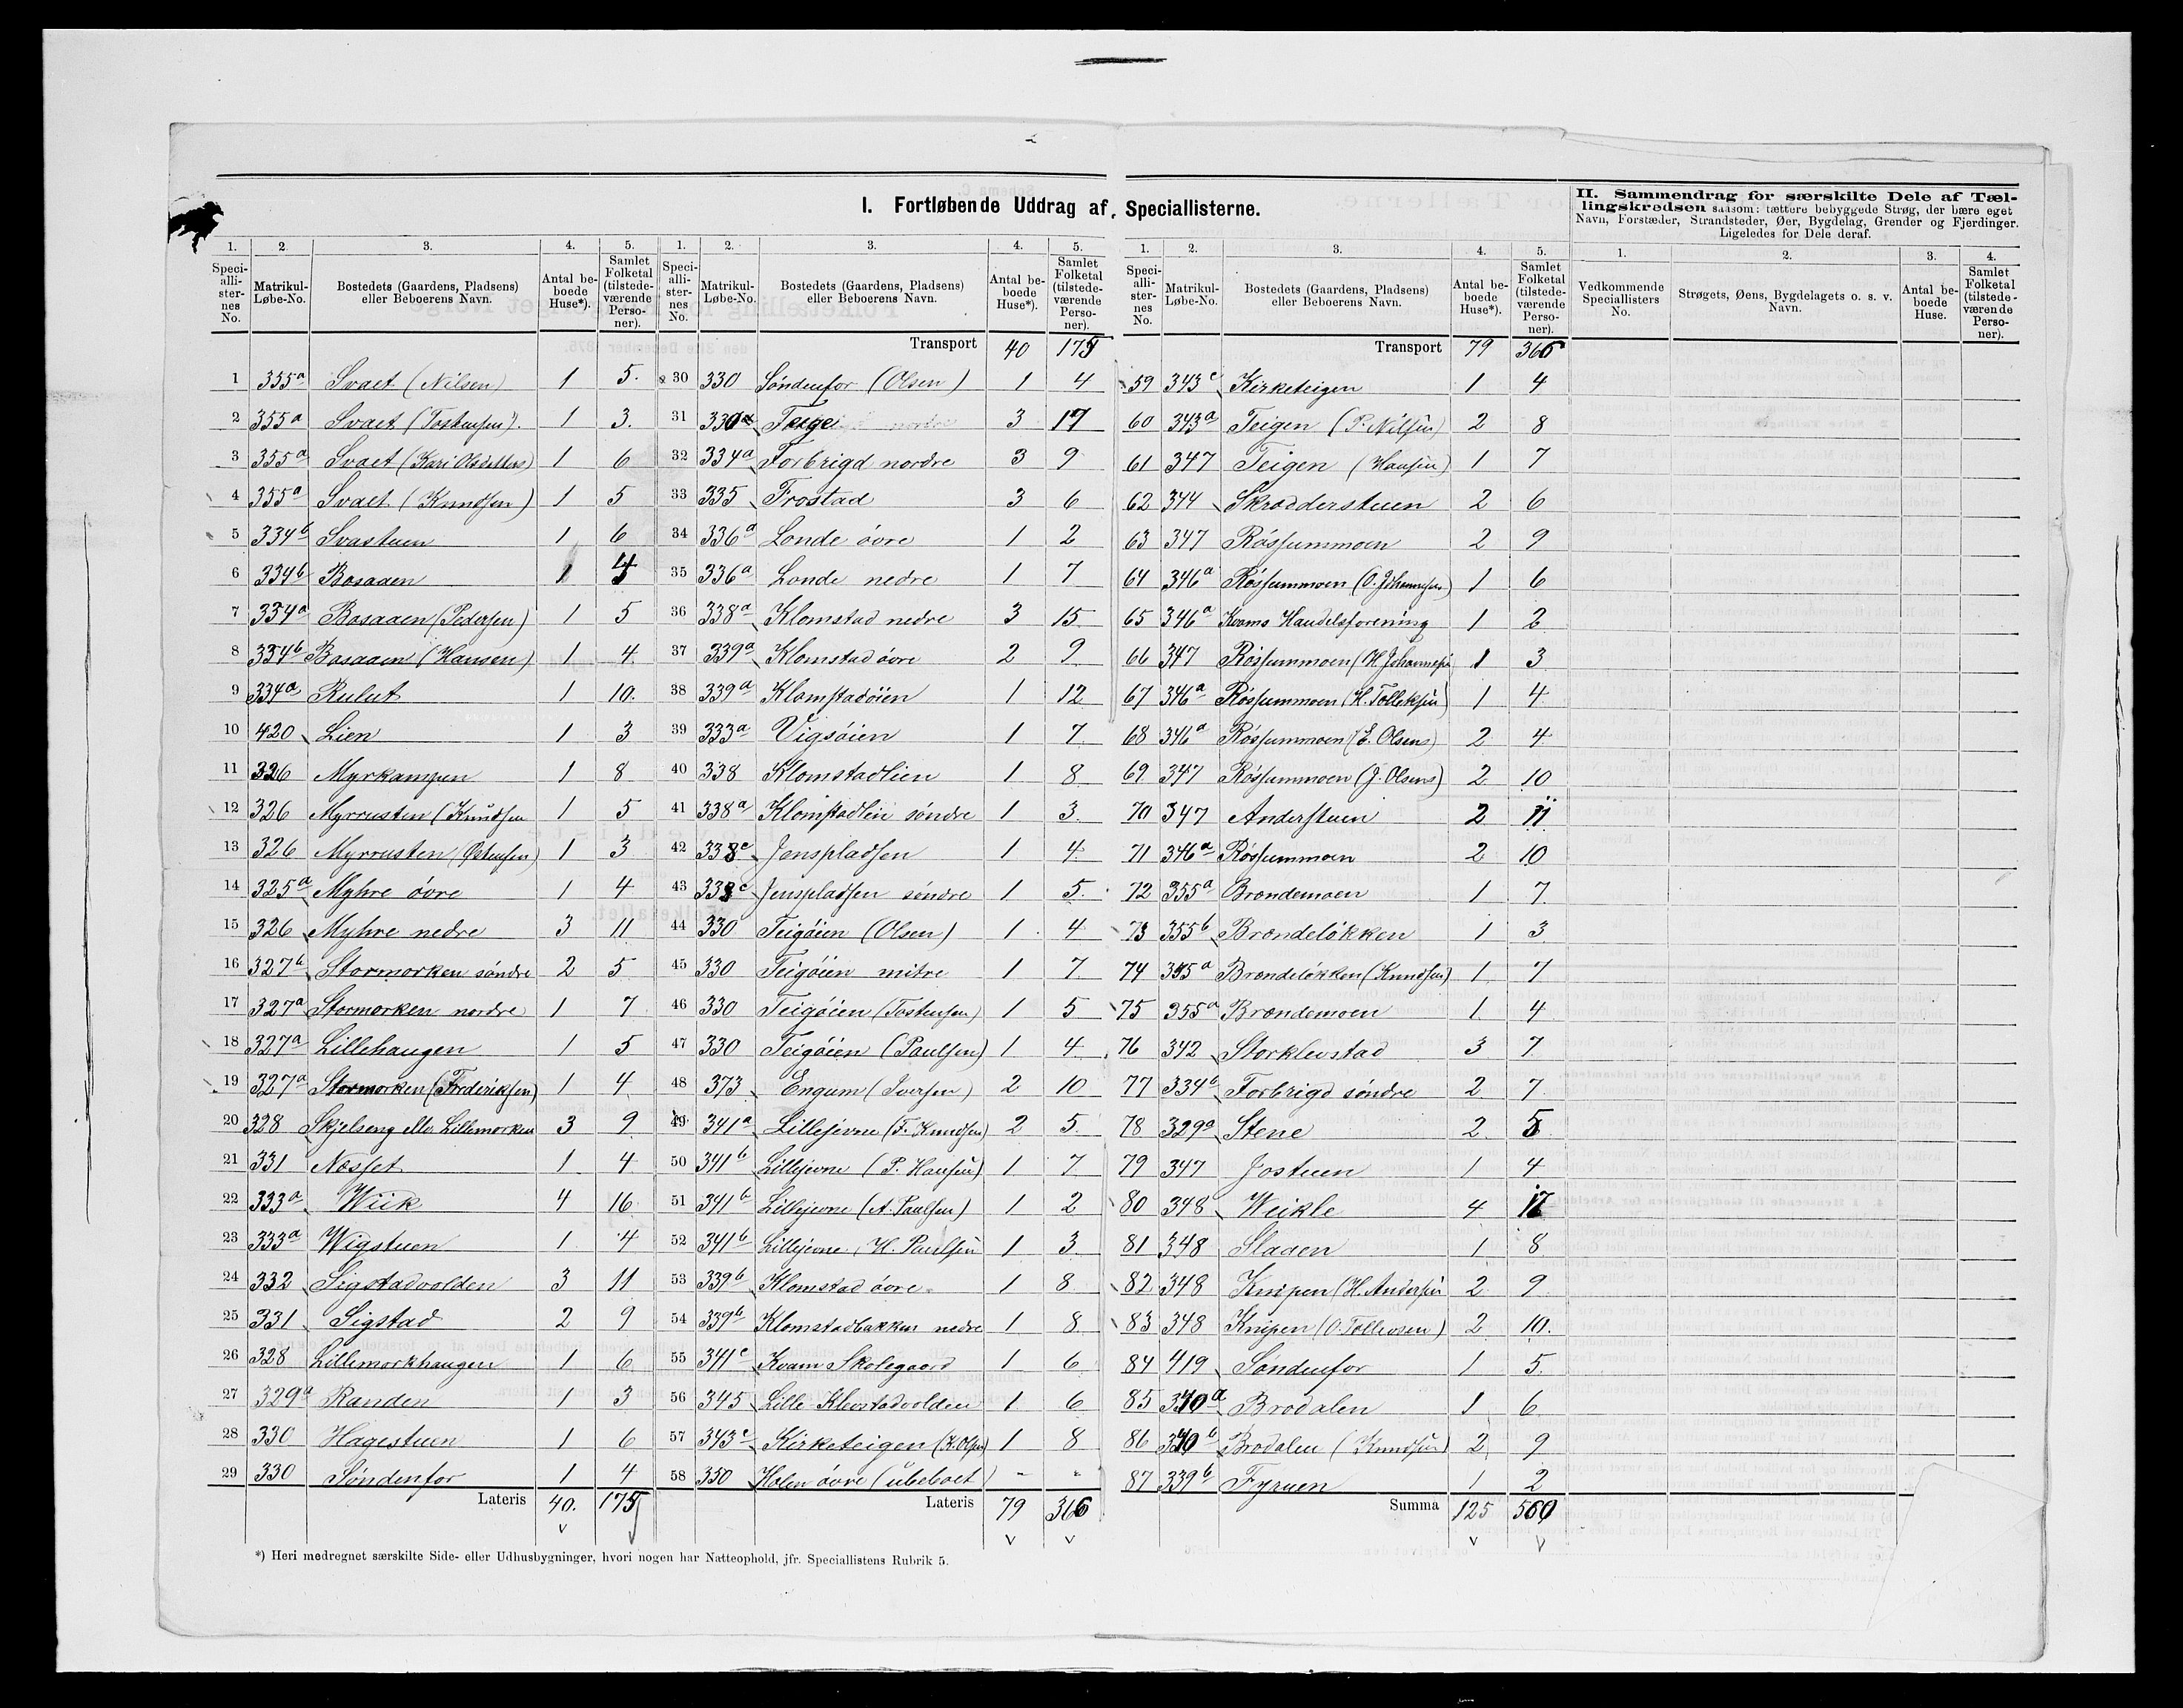 I. Fortløbende Uddrag af Speciallisterne.
II. Sammendrag for særskilte Dele af Tæl-
lingskredsen saasom: tættere bebyggede Strøg, der bære eget
Navn, Forstæder, Strandsteder, Øer, Bygdelag, Grender og Fjerdinger.
Ligeledes for Dele deraf.
1. 2 3. 4. 5.
Speci-alli-ster-nes No. Matrikul-Løbe-No. Bostedets (Gaardens, Pladsens) eller Beboerens Navn. Antal be-boede Huse*). Samlet Folketal (tilstede-værende Perso-ner).
1 355a Svaet (Nilsen) 1 5.
2 355a Svaet (Tostensen). 1 3.
3 355a Svaet (Kari Olsdatters) 1 6
4 355a Svaet (Knudsen) 1 5
5 334b Svastuen 1 6
6 334b Bosaaen 1 4
7 334a Bosaaen (Pedersen) 1 5
8 334b Bosaaen (Hansen) 1 4
9 334a Rulut 1 10.
10 420 Lien 1 3
11 326 Myrkampen 1 8
12 326 Myrrusten (Knudsen 1 5
13 326 Myrrusten (Østensen) 1 3
14 325a Myhre øvre 1 4
15 326 Myhre nedre 3 11
16 327b Stormorken søndre 2 5
17 327a Stormorken nordre 1 7
18 327a Lillehaugen 1 5
19 327a Stormorken (Frederiksen) 1 4
20 328 Skjelseng ell. Lillemorken 3 9
21 331 Næsset 1 4
22 333a Wiik 4 16
23 333a Wigstuen 1 4
24 332 Sigstadvolden 3 11
25 331 Sigstad 2 9
26 328 Lillemorkhaugen 1 6
27 329a Randen 1 3
28 330 Hagestuen 1 6
29 330 Søndenfor 1 4
Lateris 40. 175
1. 2. 3. 4. 5.
Speci-alli-ster-nes No. Matrikul-Løbe-No. Bostedets (Gaardens, Pladsens) eller Beboerens Navn. Antal be-boede Huse*). Samlet Folketal (tilstede-værende Perso-ner).
Transport 40 175
30 330 Søndenfor (Olsen) 1 4
31 330 Teige 3 17
32 334a Forbrigd nordre 3 9
33 335 Frostad 3 6
34 336a Londe øvre 1 2
35 336a Londe nedre 1 7
36 338a Klomstad nedre 3 15
37 339a Klomstad øvre 2 9
38 339a Klomstadøien 1 12
39 333a Vigsøien 1 7
40 338 Klomstadlien 1 8
41 338a Klomstadlien søndre 1 3
42 338c Jenspladsen 1 4
43 338c Jenspladsen søndre 1 5
44 330 Teigøien (Olsen) 1 4
45 330 Teigøien mitre 1 7
46 330 Teigøien (Tostensen) 1 5
47 330 Teigøien (Paulsen) 1 4
48 373 Engum (Iversen) 2 10
49 341a Lillejevne (T. Knudsen) 2 5
50 341b Lillejevne (P. Hansen) 1 7
51 341b Lillejevne (A. Paulsen) 1 2
52 341b Lillejevne (H. Paulsen 1 3
53 339b Klomstad øvre 1 8
54 339b Klomstadbakken nedre 1 8
55 341c Kvam Skolegaard 1 6
56 345 Lille Klevstadvolden 1 6
57 343c Kirketeigen (K. Olsen) 1 8
58 350 Holen øvre (ubeboet) - -
Lateris 79 366
1. 2. 3. 4. 5.
Speci-alli-ster-nes No. Matrikul-Løbe-No. Bostedets (Gaardens, Pladsens) eller Beboerens Navn. Antal be-boede Huse*). Samlet Folketal (tilstede-værende Perso-ner).
Transport 79 366
59 343c Kirketeigen 1 4
60 343a Teigen (P. Nilsen) 2 8
61 347 Teigen (Hansen) 1 7
62 344 Skrædderstuen 2 6
63 347 Røssummoen 2 9
64 346a Røssummoen (O. Johannesen) 1 6
65 346a Kvams Handelsforening 1 2
66 347 Røssummoen (H. Johannesen 1 3
67 346a Røssummoen (H. Tolleksen) 1 4
68 346a Røssummoen (E. Olsens) 2 4
69 347 Røssummoen (J. Olsens) 2 10
70 347 Anderstuen 2 11
71 346a Røssummoen 2 10
72 355a Brændemoen 1 7
73 355b Brændeløkken 1 3
74 355a Brændeløkken (Knudsen) 1 7
75 355a Brændemoen 1 4
76 342 Storklevstad 3 7
77 334b Forbrigd søndre 2 7
78 329a Stene 2 5
79 347 Jostuen 1 4
80 348 Weikle 4 17
81 348 Slaaen 1 8
82 348 Knipen (H. Andersen 2 9
83 348 Knipen (O. Tollevsen) 2 10.
84 419 Søndenfor 1 5
85 340a Brodalen 1 6
86 340b Brodalen (Knudsen) 2 9
87 339b Fyruen 1 2
Summa 125 560
1. 2. 3. 4.
Vedkommende Speciallisters No. Strøgets, Øens, Bygdelagets o. s. v. Navn. Antal be-boede Huse. Samlet Folketal (tilstede-værende Perso-ner).
*) Heri medregnet særskilte Side- eller Udhusbygninger, hvori nogen har Natteophold, jfr. Speciallistens Rubrik 5.